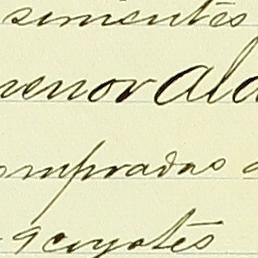 simientes
menor Ald
ompradas a
acoyotes